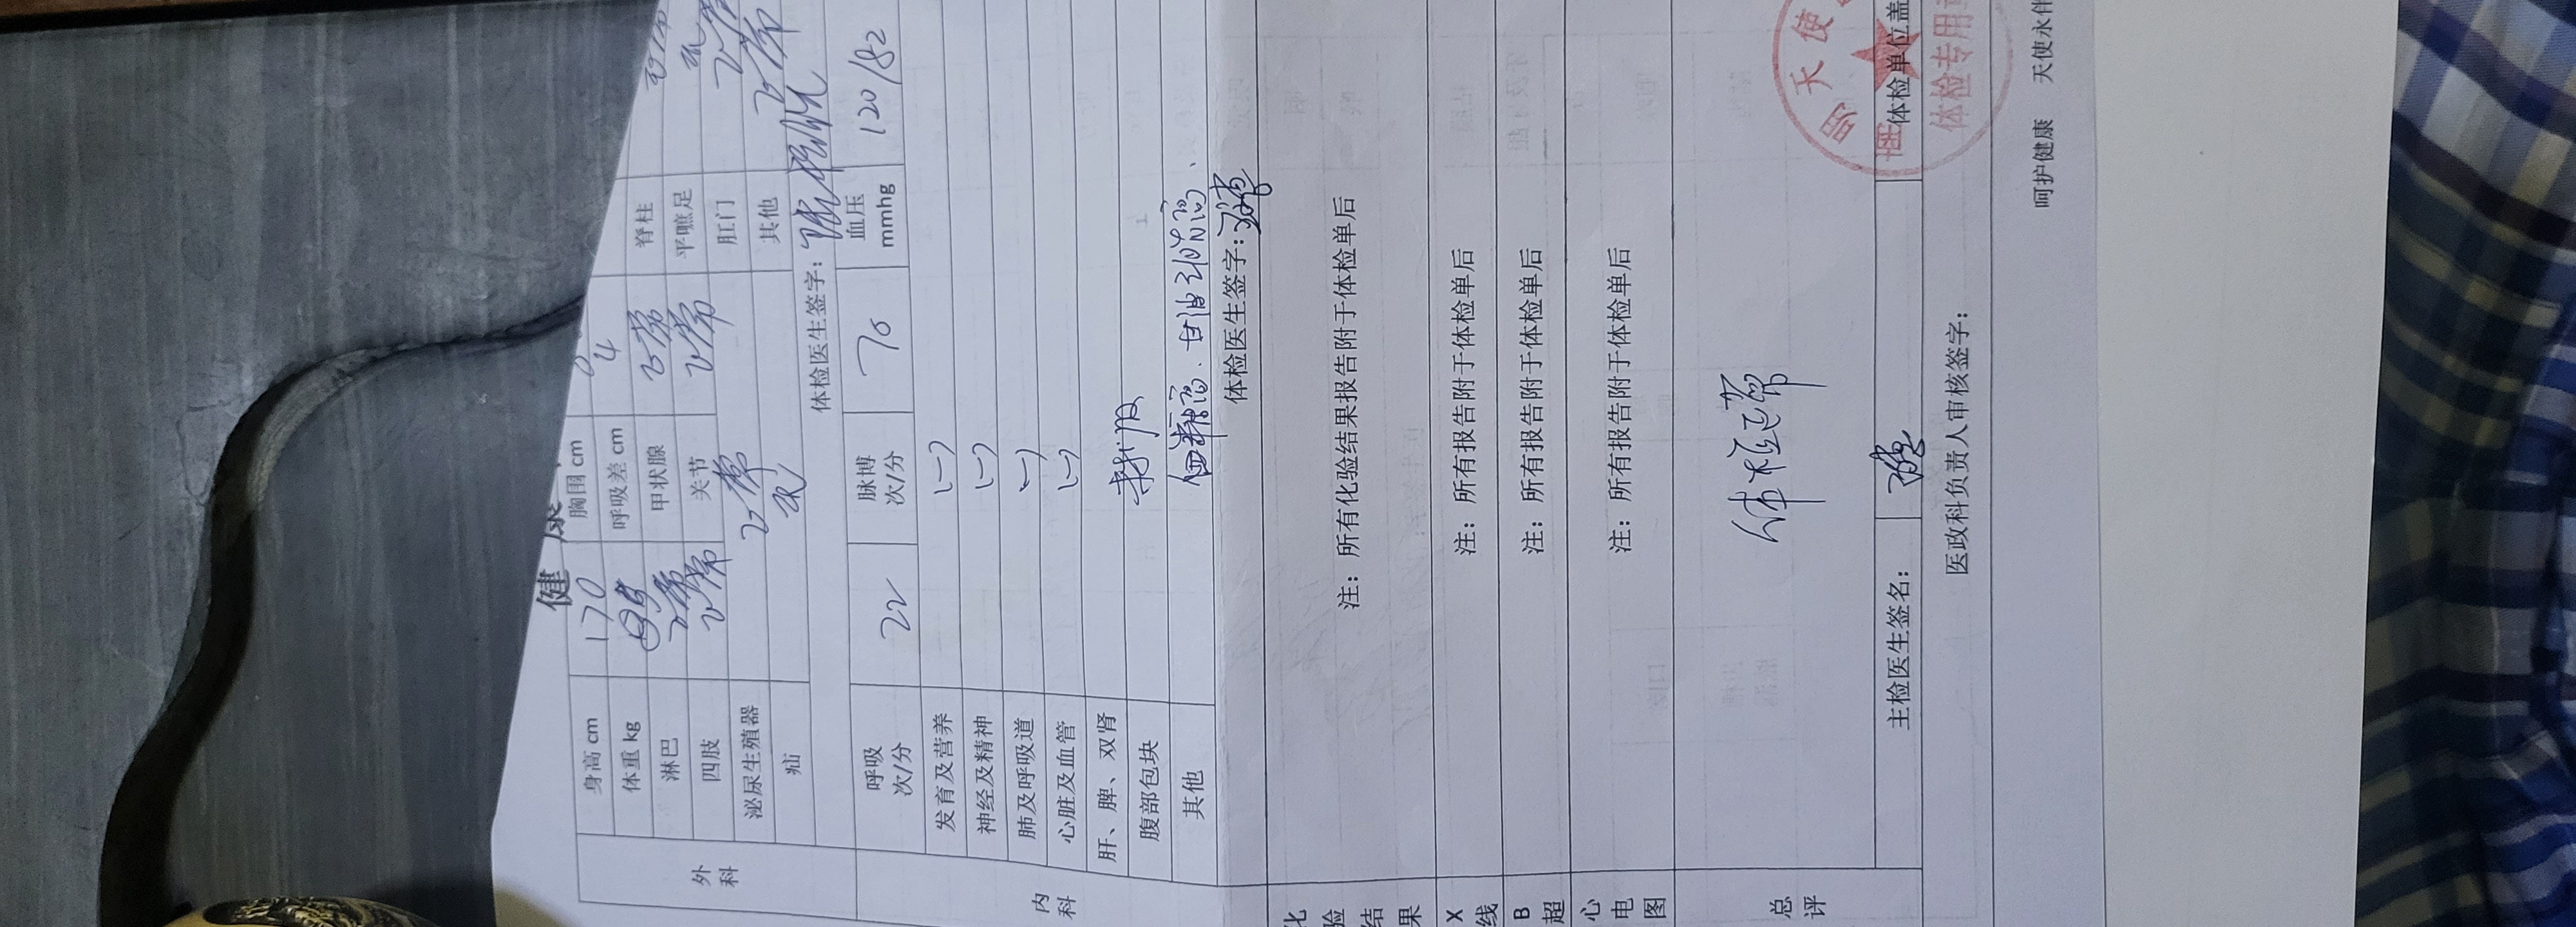 健 康
身高 cm 170 胸围 cm
体重 kg 呼吸差 cm 4
淋巴 正常 甲状腺 正常 脊柱
四肢 正常 关节 正常 平蹠足
泌尿生殖器 正常 肛门 正常
疝 无 其他 正常
外科
体检医生签字：
呼吸 次/分 22 脉博 次/分 70 血压 mmhg 120/82
发育及营养 (-)
神经及精神 (-)
肺及呼吸道 (-)
心脏及血管 (-)
肝、脾、双肾
腹部包块 未扪及
其他 血糖高、甘油三酯高、
内科
体检医生签字：
化验结果 注：所有化验结果报告附于体检单后
X线 注：所有报告附于体检单后
B超 注：所有报告附于体检单后
心电图 注：所有报告附于体检单后
总评 体检正常
主检医生签名： 体检单位盖
明天使
体检专用章
医政科负责人审核签字：
呵护健康 天使永伴